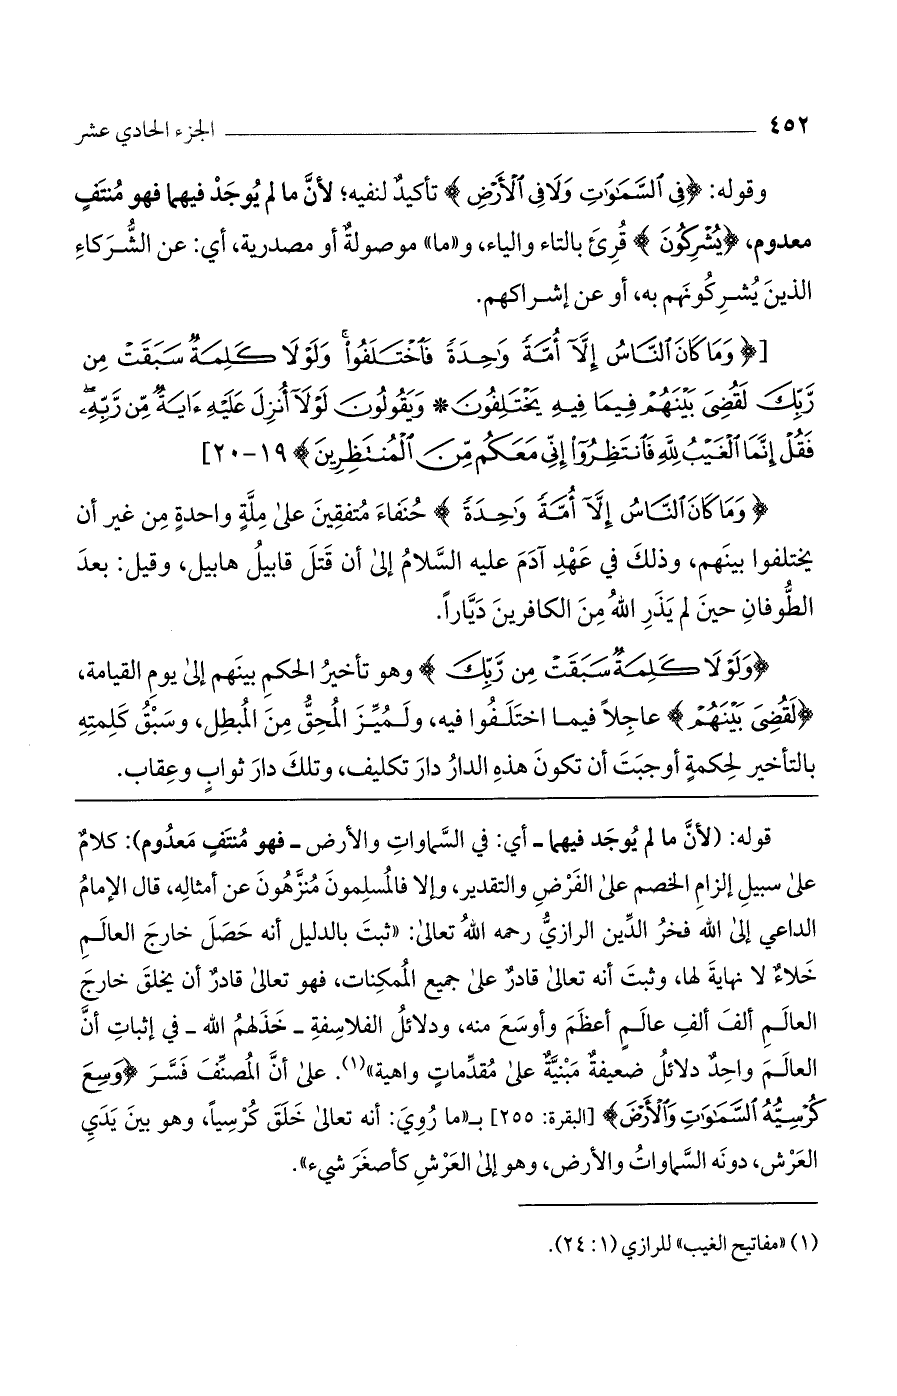 ٤٥٢ الجزء الحادي عشر
وقوله: ﴿فِى ٱلسَّمَٰوَٰتِ وَلَا فِى ٱلْأَرْضِ﴾ تأكيدٌ لنفيه؛ لأنَّ ما لم يُوجَدْ فيهما فهو مُنتَفٍ
معدوم، ﴿يُشْرِكُونَ﴾ قُرِئَ بالتاء والياء، و«ما» موصولةٌ أو مصدرية، أي: عن الشُّركاءِ
الذينَ يُشرِكُونَهم به، أو عن إشراكهم.
[﴿وَمَا كَانَ ٱلنَّاسُ إِلَّآ أُمَّةً وَٰحِدَةً فَٱخْتَلَفُوا۟ ۚ وَلَوْلَا كَلِمَةٌ سَبَقَتْ مِن
رَّبِّكَ لَقُضِىَ بَيْنَهُمْ فِيمَا فِيهِ يَخْتَلِفُونَ * وَيَقُولُونَ لَوْلَآ أُنزِلَ عَلَيْهِ ءَايَةٌ مِّن رَّبِّهِۦ ۖ
فَقُلْ إِنَّمَا ٱلْغَيْبُ لِلَّهِ فَٱنتَظِرُوٓا۟ إِنِّى مَعَكُم مِّنَ ٱلْمُنتَظِرِينَ﴾ ١٩-٢٠]
﴿وَمَا كَانَ ٱلنَّاسُ إِلَّآ أُمَّةً وَٰحِدَةً﴾ حُنَفاءَ مُتفِقِينَ على مِلَّةٍ واحدةٍ مِن غير أن
يختلفوا بينَهم، وذلكَ في عَهْدِ آدَمَ عليه السَّلامُ إلى أن قَتَلَ قابيلُ هابيل، وقيل: بعدَ
الطُّوفانِ حينَ لم يَذَرِ اللهُ مِنَ الكافرينَ دَيَّاراً.
﴿وَلَوْلَا كَلِمَةٌ سَبَقَتْ مِن رَّبِّكَ﴾ وهو تأخيرُ الحكمِ بينَهم إلى يومِ القيامة،
﴿لَقُضِىَ بَيْنَهُمْ﴾ عاجِلاً فيما اختَلَفُوا فيه، ولَمُيِّزَ المُحِقُّ مِنَ المُبطِل، وسَبْقُ كَلِمتِهِ
بالتأخير لِحكمةٍ أوجبَتَ أن تكونَ هذهِ الدارُ دارَ تكليف، وتلكَ دارَ ثوابٍ وعِقاب.
قوله: (لأنَّ ما لم يُوجَد فيهما - أي: في السَّماواتِ والأرض - فهو مُنتَفٍ مَعدُوم): كلامٌ
على سبيلِ إلزامِ الخصم على الفَرْضِ والتقدير، وإلا فالمُسلِمونَ مُنزَّهُونَ عن أمثالِه، قال الإمامُ
الداعي إلى الله فخرُ الدِّين الرازيُّ رحمه اللهُ تعالى: «ثبتَ بالدليل أنه حَصَلَ خارجَ العالَمِ
خَلاءٌ لا نهايةَ لها، وثبتَ أنه تعالى قادرٌ على جميع المُمكِنات، فهو تعالى قادرٌ أن يخلقَ خارجَ
العالَمِ ألفَ ألفِ عالَمٍ أعظَمَ وأوسَعَ منه، ودلائلُ الفلاسِفةِ - خَذَلهُمُ الله - في إثباتِ أنَّ
العالَمَ واحِدٌ دلائلُ ضعيفةٌ مَبْنيَّةٌ على مُقدِّماتٍ واهية»(١). على أنَّ المُصنِّفَ فَسَّرَ ﴿وَسِعَ
كُرْسِيُّهُ ٱلسَّمَٰوَٰتِ وَٱلْأَرْضَ﴾ [البقرة: ٢٥٥] بـ«ما رُوِيَ: أنه تعالى خَلَقَ كُرْسياً، وهو بينَ يَدَيِ
العَرْش، دونَه السَّماواتُ والأرض، وهو إلى العَرْشِ كأصغَرَ شيء».
(١) «مفاتيح الغيب» للرازي (١: ٢٤).